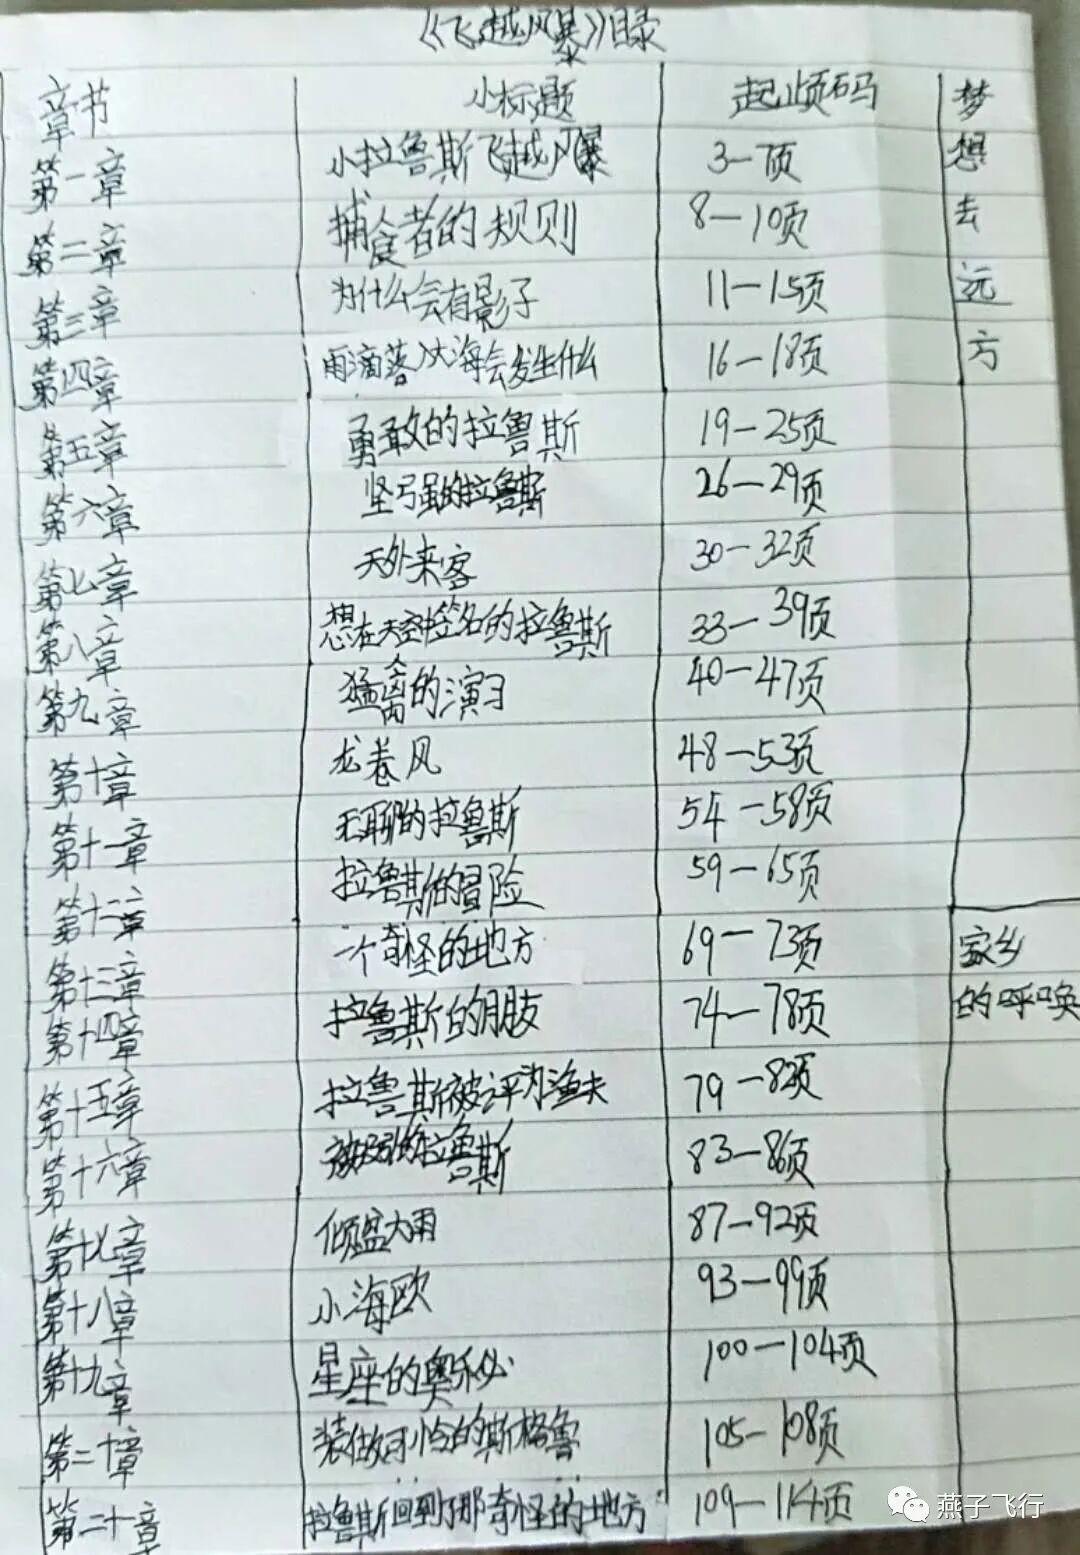 《飞越风暴》目录
章节 小标题 起止页码 梦想去远方
第一章 小拉鲁斯飞越风暴 3—7页
第二章 捕食者的规则 8—10页
第三章 为什么会有影子 11—15页
第四章 雨滴落入大海会发生什么 16—18页
第五章 勇敢的拉鲁斯 19—25页
第六章 坚强的拉鲁斯 26—29页
第七章 天外来客 30—32页
第八章 想在天空中签名的拉鲁斯 33—39页
第九章 猛禽的演习 40—47页
第十章 龙卷风 48—53页
第十一章 无聊的拉鲁斯 54—58页
第十二章 拉鲁斯的冒险 59—65页
第十三章 一个奇怪的地方 69—73页 家乡
第十四章 拉鲁斯的朋友 74—78页 的呼唤
第十五章 拉鲁斯被评为渔夫 79—82页
第十六章 拉鲁斯 83—86页
第十七章 倾盆大雨 87—92页
第十八章 小海欧 93—99页
第十九章 星座的奥秘 100—104页
第二十章 装做可怜的斯格鲁 105—108页
第二十一章 拉鲁斯回到那奇怪的地方 109—114页
燕子飞行